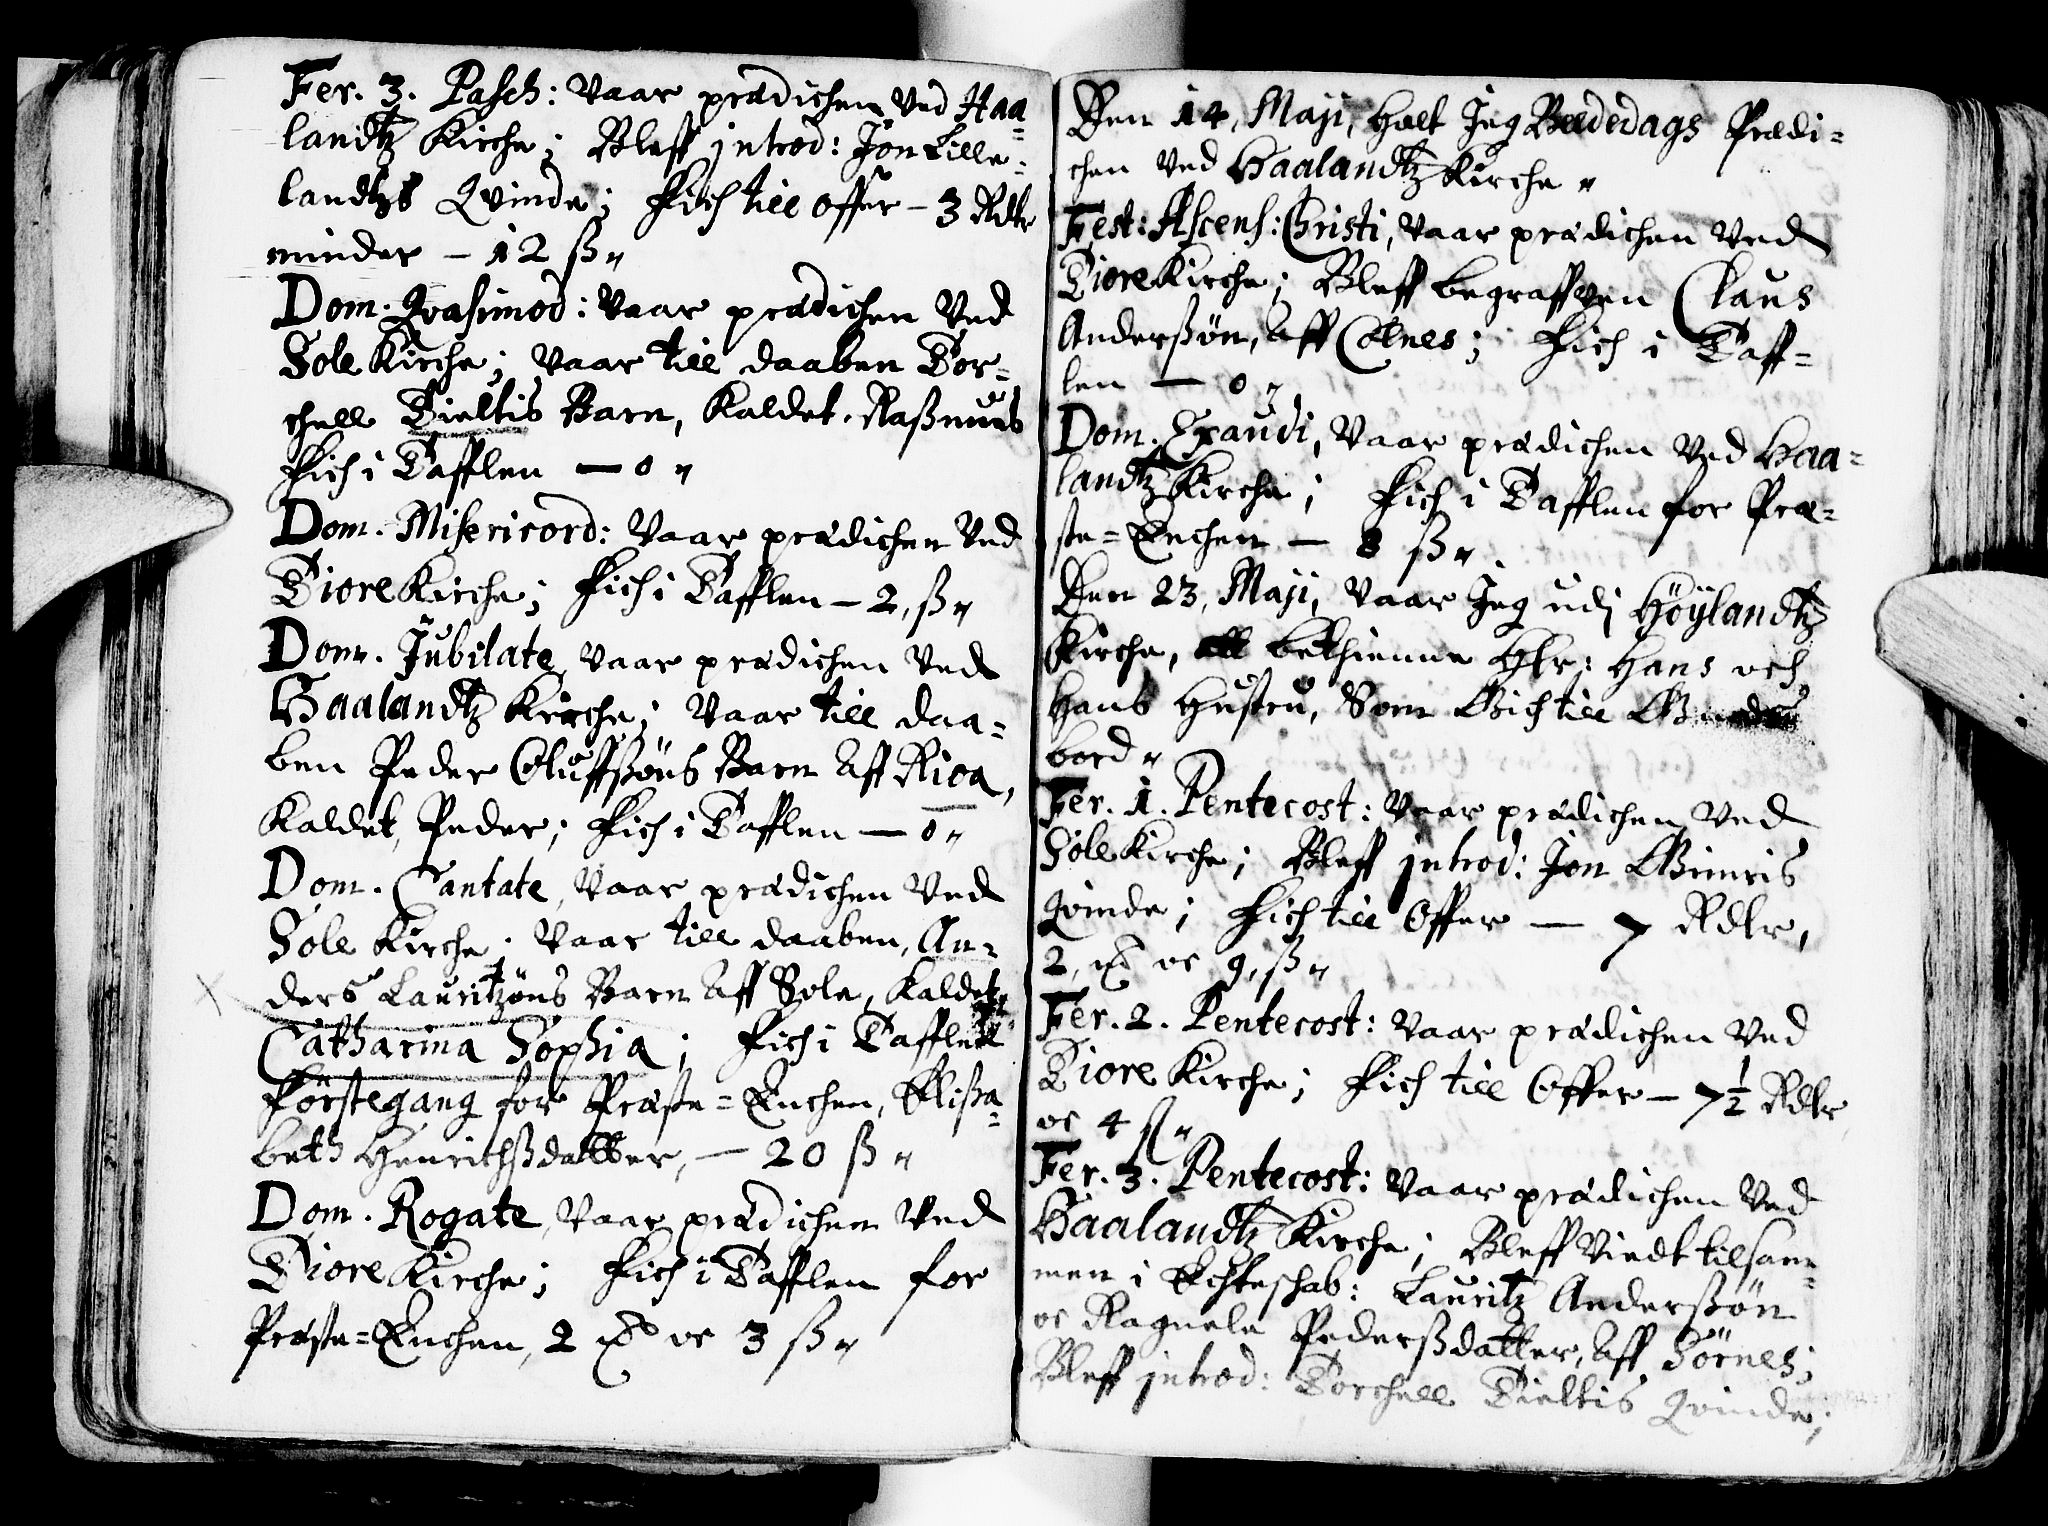 Fer. 3. Pasch: Vaar prædichen ved Haa-
landtz Kirche; Bleff introd: Jon Lille-
landtzs Qvinde; Fich till offer - 3 Rdlr
minder - 12 ß
Dom. Qvasimod: Vaar prædichen Ved
Sole Kirche; Vaar till daaben Tor-
chell Tieltis Barn, Kaldet, Raßmus
Fich i Tafflen - 0
Dom. Misericord: Vaar prædichen Ved
Tiore Kirche; Fich i Tafflen - 2, ß
Dom. Jubilate, Vaar prædichen Ved
Haalandtz Kirche; Vaar till daa-
ben Peder Oluffßøns Barn Aff Rioa,
Kaldet, Peder; Fich i Tafflen - 0
Dom. Cantate, Vaar prædichen Ved
Sole Kirche; Vaar till daaben, An-
ders Lauritzøns Barn Aff Sole, Kaldet
Catharina Sophia; Fich i Tafflen
Förstegang for Præste-Enchen, Elisa-
beth Henrichßdatter, - 20 ß
Dom. Rogate, Vaar prædichen Ved
Tiore Kirche; Fich i Tafflen for
Præste-Enchen, 2 oc 3 ß
Den 14, Maji, Holt Jeg Bededags Prædi-
chen Ved Haalandtz Kirche
Fest: Ascens: Christi, Vaar prædichen Ved
Tiore Kirche; Bleff begraffven Claus
Anderßøn, Aff Cølnes; Fich i Taff-
len - 0
Dom. Exaudi, Vaar prædichen Ved Haa-
landtz Kirche; Fich i Tafflen for Præ-
ste-Enchen - 8 ß
Den 23, Maji, Vaar Jeg udj Höylandtz
Kirche, bethienne Hr: Hans och
Hans Hustru, Som Gich till Gudes
bord
Fer. 1. Pentecost: Vaar prædichen Ved
Sole Kirche; Bleff introd: Jon Gimris
Qvinde; Fich till Offer - 7 Rdlr,
2, oc 9, ß
Fer. 2. Pentecost: Vaar prædichen Ved
Tiore Kirche; Fich till Offer - 7½ Rdlr
oc 4 ß
Fer. 3. Pentecost: Vaar prædichen Ved
Haalandtz Kirche; Bleff Viedt tilsam-
men i Echteschab: Lauritz Anderßøn
oc Ragnele Pederßdatter, Aff Sörnes;
Bleff introd: Torchell Tieltis Qvinde;